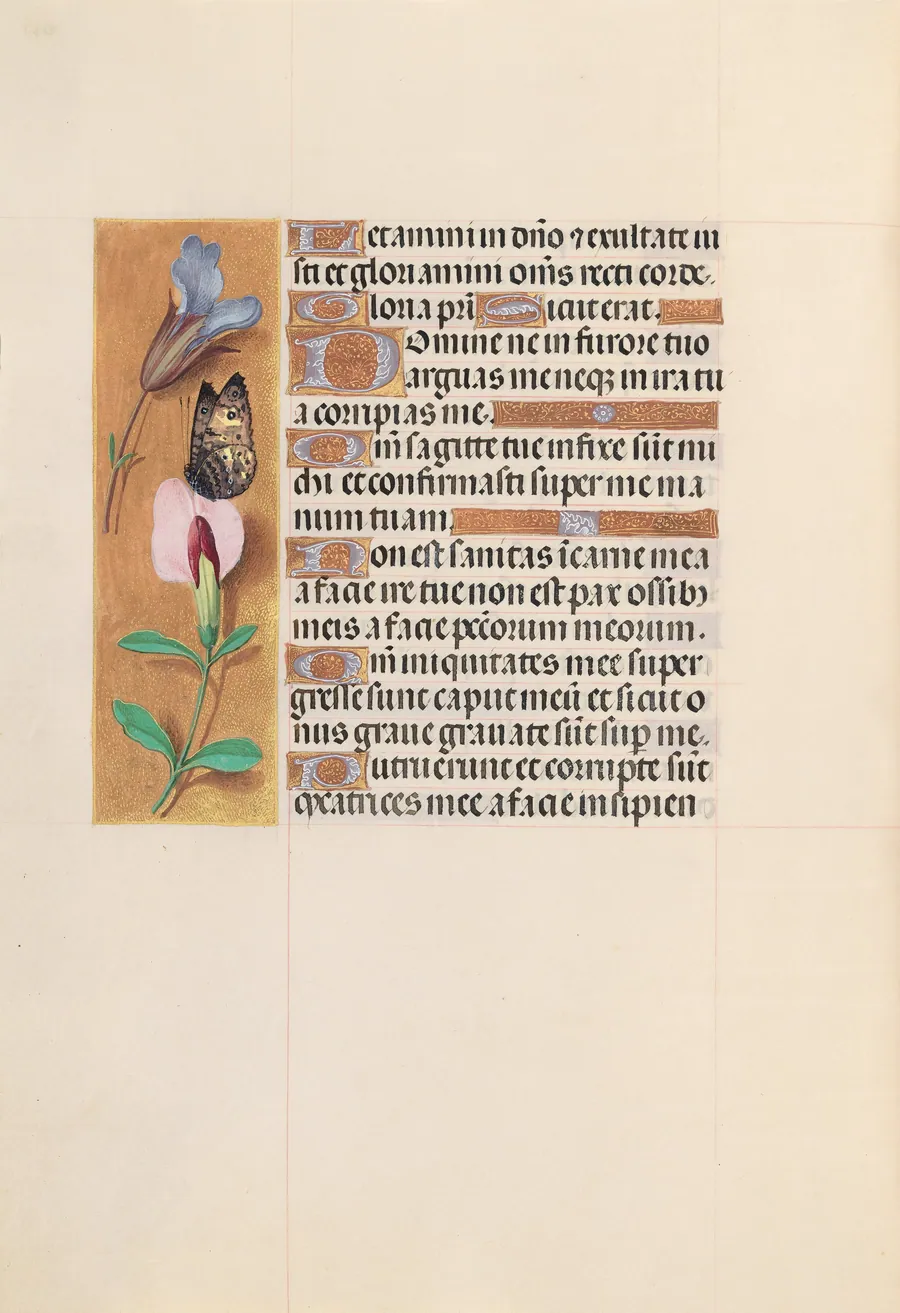 Letamini in dño ⁊ exultate iu
sti et gloriamini om̃s recti corde.
Gloria pr̃i Sicut erat.
Domine ne in furore tuo
arguas me neqꝫ in ira tu
a corripias me.
Qm̃ sagitte tue infixe sũt mi
chi et confirmasti super me ma
num tuam.
Non est sanitas ĩ carne mea
a facie ire tue non est pax ossibꝰ
meis a facie pccõrum meorum.
Qm̃ iniquitates mee super
gresse sunt caput meũ et sicut o
nus graue grauate sũt sup̱ me.
Putruerunt et corrupte sũt
cicatrices mee a facie insipien